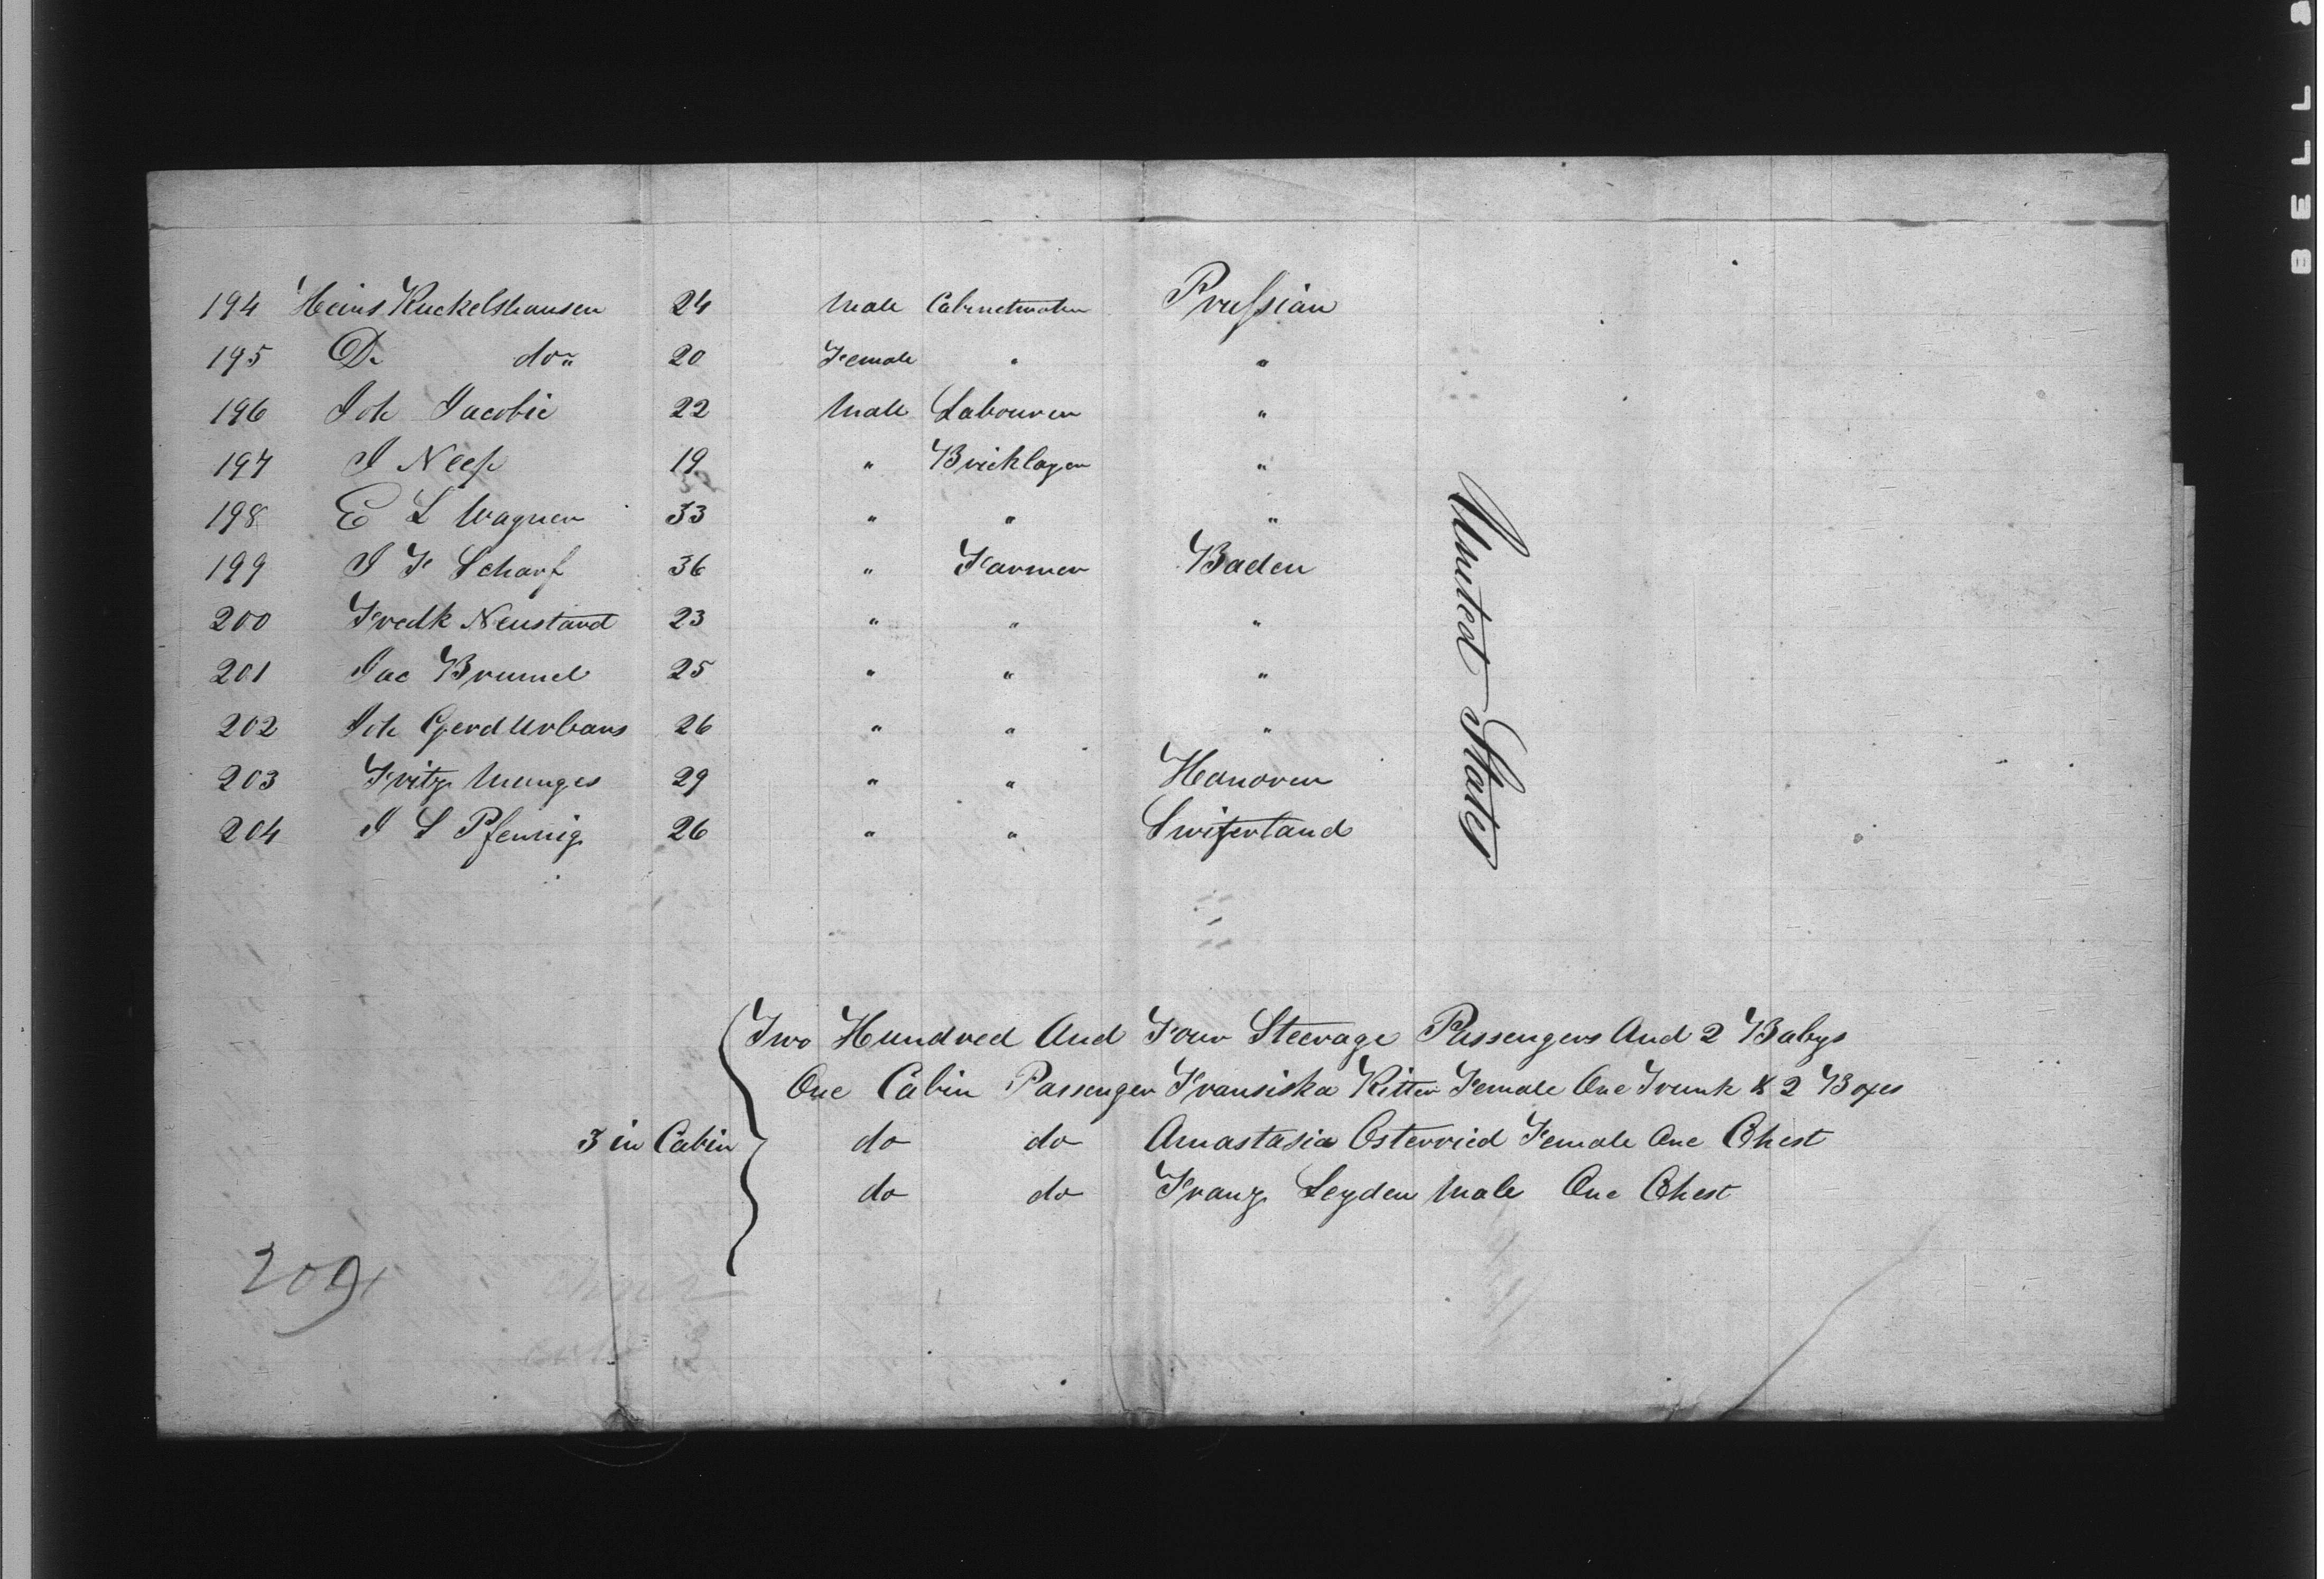 194 Heins Kuckelshausen 24 Male Cabinetmaker Prussian
195 D. do " 20 Female " "
196 Joh Jacobie 22 Male Labourer "
197 J Neess 19 " Bricklayer "
198 E L Wagner 33 " " "
199 J F Scharf 36 " Farmer Baden
200 Fredk Neustand 23 " " "
201 Jac Brumel 25 " " "
202 Joh Gerd Urbans 26 " " "
203 Fritz Munges 29 " " Hanover
204 J S Pfennig 26 " " Switzerland
United States
Two Hundred And Four Steerage Passengers And 2 Babys
One Cabin Passenger Fransiska Ritter Female One Trunk & 2 Boxes
3 in Cabin do do Anastasia Osterried Female One Chest
do do Franz Leyden Male One Chest
209
BELL &